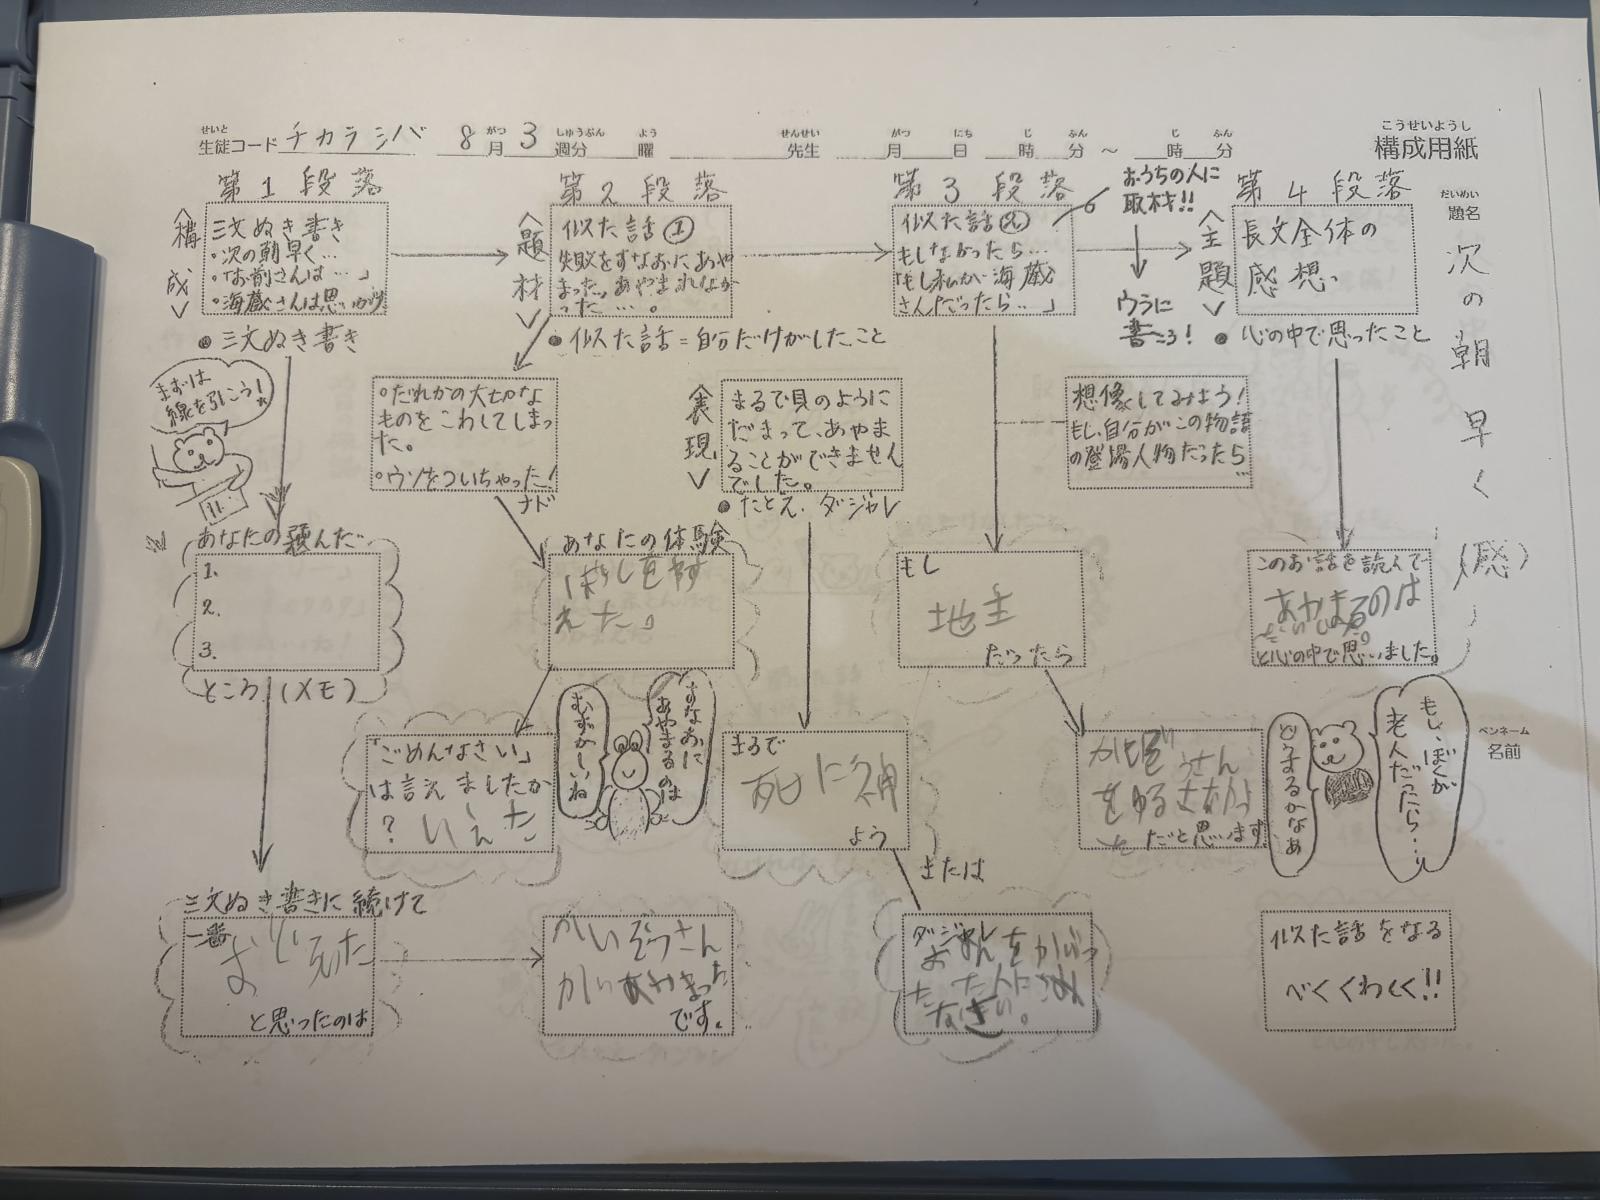 せいと
生徒コード チカラシバ 8月3週分 曜 先生 月 日 時 分 ～ 時 分
がつ しゅうぶん よう せんせい がつ にち じ ふん じ ふん
こうせいようし
構成用紙
だいめい
題名
次の朝早く(感)
ペンネーム
名前
第1段落
〈構成〉
三文ぬき書き
・次の朝早く…
・「お前さんは…」
・海蔵さんは思いながら
●三文ぬき書き
まずは
線を引こう!
あなたの選んだ
1.
2.
3.
ところ(メモ)
三文ぬき書きに続けて
一番
と思ったのは
第2段落
〈題材〉
似た話①
失敗をすなおにあや
まった。あやまれなか
った…。
●似た話=自分だけがしたこと
○だれかの大切な
ものをこわしてしまっ
た。
○ウソをついちゃった!
ナド
あなたの体験
「ごめんなさい」
は言えましたか
?
いえた
すなおに
あやまるのは
むずかしいね
かいぞうさん
です。
〈表現〉
まるで貝のように
だまって、あやま
ることができません
でした。
●たとえ、ダジャレ
まるで
よう
または
ダジャレ
第3段落
似た話②
もしなかったら…
「もし私が海蔵
さんだったら…」
おうちの人に
取材!!
ウラに
書こう!
想像してみよう!
もし、自分がこの物語
の登場人物だったら
…
もし
地主
だったら
だと思います
第4段落
〈主題〉
長文全体の
感想、
●心の中で思ったこと
このお話を読んで
あやまるのは
と心の中で思いました。
もし、ぼくが
老人だったら…
どうするかなあ
似た話をなる
べくくわしく!!